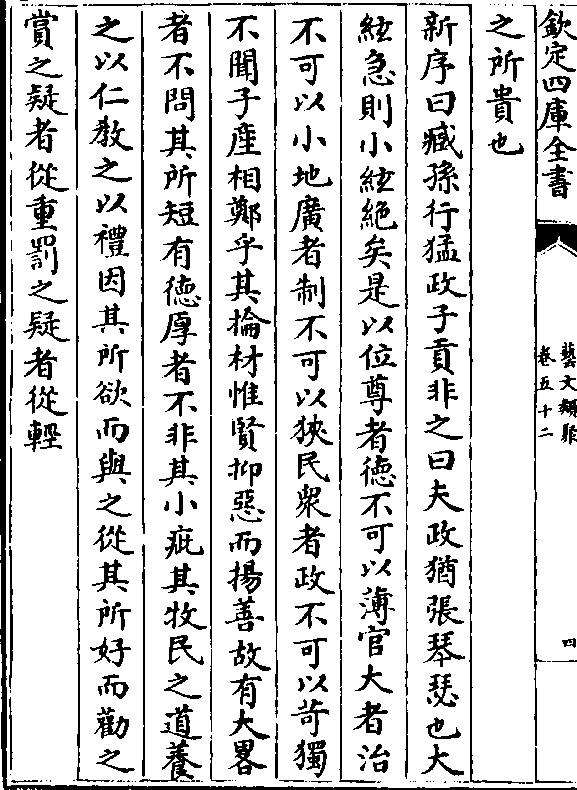 欽定四庫全書
藝文類聚
卷五十二
四
之所貴也
新序曰臧孫行猛政子貢非之曰夫政猶張琴瑟也大
絃急則小絃絕矣是以位尊者德不可以薄官大者治
不可以小地廣者制不可以狹民衆者政不可以苛獨
不聞子產相鄭乎其掄材惟賢抑惡而揚善故有大畧
者不問其所短有德厚者不非其小疵其牧民之道養
之以仁教之以禮因其所欲而與之從其所好而勸之
賞之疑者從重罰之疑者從輕